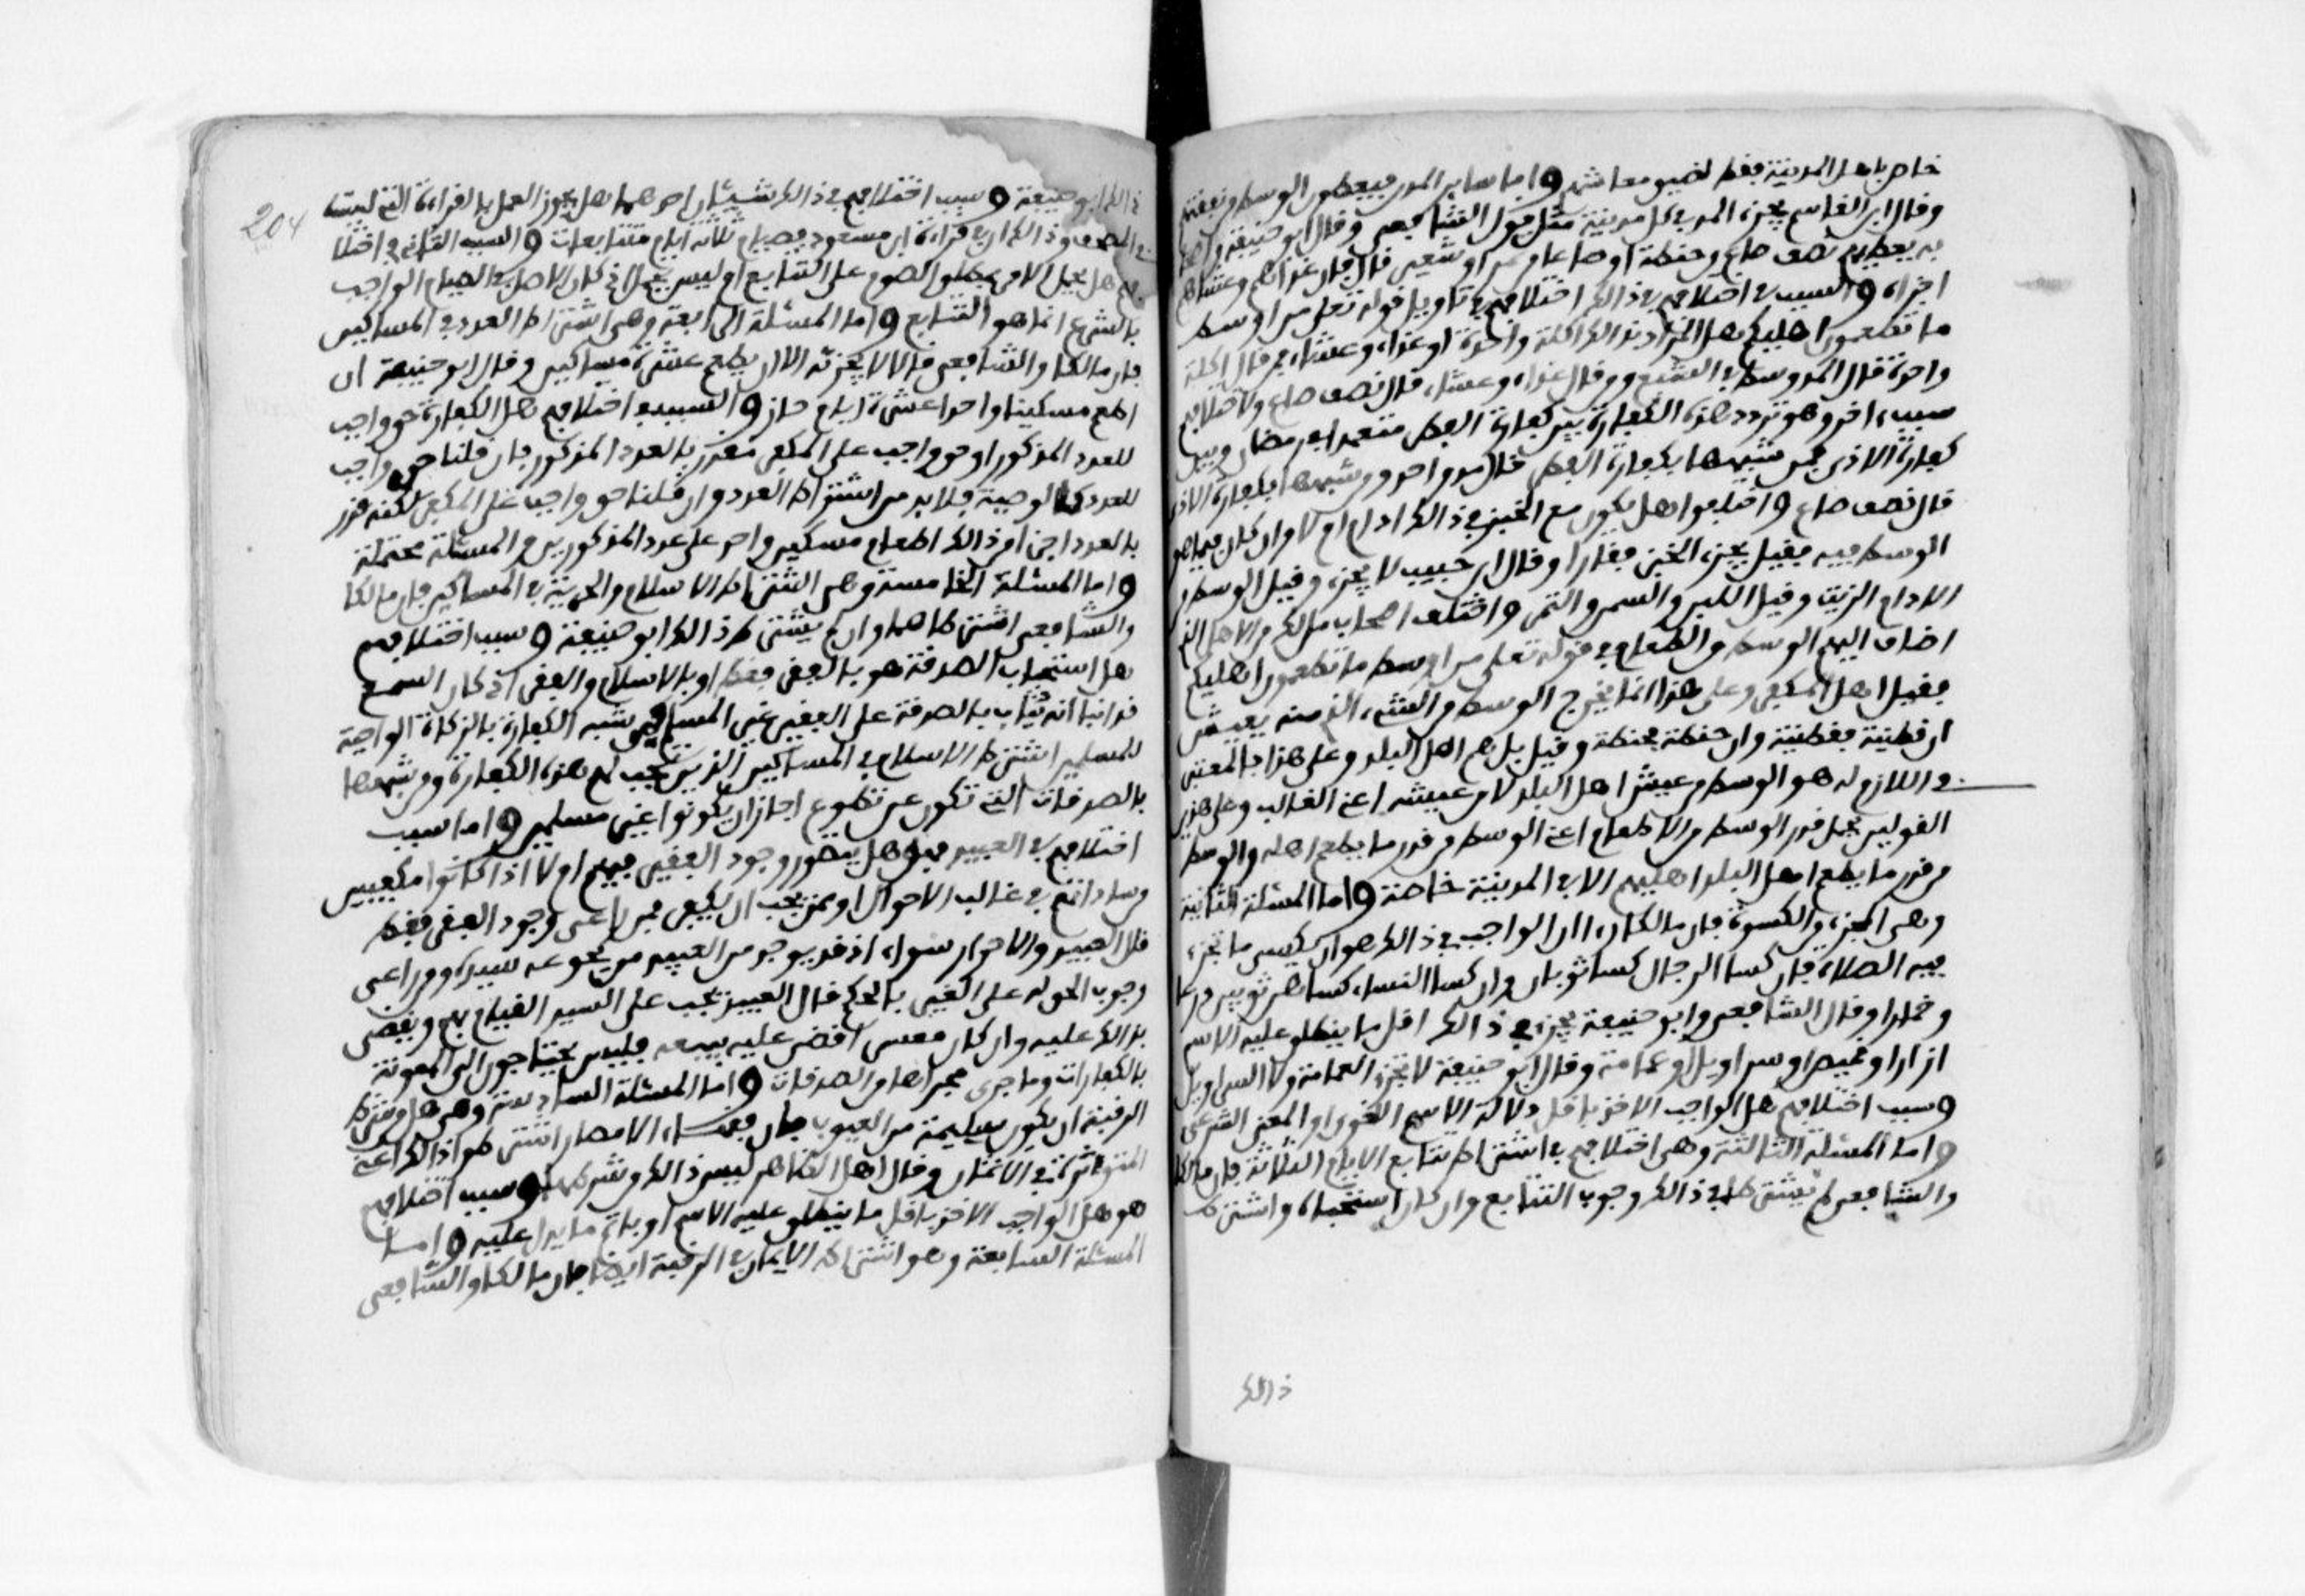 خاص باهل المدينة فقط لضيق معاشهم واما ساير المدن فيعطون الوسط من نفقتهم
وقال ابن القاسم يجزء المد في كل مدينة مثل قول الشافعي وقال ابو حنيفة واصحا
به يعطيهم نصف صاع من حنطة او صاعا من تمر او شعير قال فان غداهم وعشاهم
اجزاه والسبب في اختلافهم في ذالك اختلافهم في تاويل قوله تعلى من اوسط
ما تطعمون اهليكم هل المراد بذالك اكلة واحدة او غداء وعشاء فمن قال اكلة
واحدة قال المد وسط في الشبع ومن قال غداء وعشاء قال نصف صاع ولاختلافهم
سبب اخر وهو تردد هذه الكفارة بين كفارة الفطر متعمدا في رمضان وبين
كفارة الاذى فمن شبهها بكفارة الفطر قال مد واحد ومن شبهها بكفارة الاذى
قال نصف صاع واختلفوا هل يكون مع الخبز في ذالك ادام ام لا وان كان فما هو
الوسط فيه فقيل يجزء الخبز قفارا وقال ابن حبيب لا يجزء وقيل الوسط من
الادام الزيت وقيل اللبن والسمن والتمر واختلف اصحاب مالك من الاهل الذين
اضاف اليهم الوسط من الطعام في قوله تعلى من اوسط ما تطعمون اهليكم
فقيل اهل المكفر وعلى هذا انما يخرج الوسط من الشيء الذي منه يعيش
ان قطنية فقطنية وان حنطة فحنطة وقيل بل هم اهل البلد وعلى هذا فالمعتبر
في اللازم له هو الوسط من عيش اهل البلد لا من عيشه اعني الغالب وعلى هذين
القولين يحمل قدر الوسط من الاطعام اعني الوسط من قدر ما يطعم اهله والوسط
من قدر ما يطعم اهل البلد اهليهم الا في المدينة خاصة واما المسئلة الثانية
وهي المجزء من الكسوة فان مالكا راا ان الواجب في ذالك هو ان يكسى ما تجزء
فيه الصلاة فان كسا الرجال كسا ثوبا وان كسا النساء كساهن ثوبين درعا
وخمارا وقال الشافعي وابو حنيفة يجزء في ذالك اقل ما ينطلق عليه الاسم
ازارا او قميصا او سراويل او عمامة وقال ابو حنيفة لا تجزء العمامة ولا السراويل
وسبب اختلافهم هل الواجب الاخذ باقل دلالة الاسم اللغوي او المعنى الشرعي
واما المسئلة الثالثة وهي اختلافهم في اشتراط تتابع الايام الثلاثة فان مالكا
والشافعي لم يشترطا في ذالك وجوب التتابع وان كانا استحباه واشترط
ذالك
204
ذالك ابو حنيفة وسبب اختلافهم في ذالك شيئان احدهما هل يجوز العمل بالقراءة التي ليست
في المصحف وذالك ان في قراءة ابن مسعود فصيام ثلاثة ايام متتابعات والسبب الثاني في اختلا
فهم هل يحمل الامر بمطلق الصوم على التتابع او ليس يحمل اذ كان الاصل في الصيام الواجب
بالشرع انما هو التتابع واما المسئلة الرابعة وهي اشتراط العدد في المساكين
فان مالكا والشافعي قالا لا يجزئه الا ان يطعم عشرة مساكين وقال ابو حنيفة ان
اطعم مسكينا واحدا عشرة ايام جاز والسبب في اختلافهم هل الكفارة حق واجب
للعدد المذكور او حق واجب على المكفر مقدر بالعدد المذكور فان قلنا حق واجب
للعدد كالوصية فلا بد من اشتراط العدد وان قلنا حق واجب على المكفر لكنه قدر
بالعدد اجزا من ذالك اطعام مسكين واحد على عدد المذكورين والمسئلة محتملة
واما المسئلة الخامسة وهي اشتراط الاسلام والحرية في المساكين فان مالكا
والشافعي اشترطاهما ولم يشترط ذالك ابو حنيفة وسبب اختلافهم
هل استيجاب الصدقة هو بالفقر فقط او بالاسلام والفقر اذ كان السمع
قد انبا انه يثاب بالصدقة على الفقير غير المسلم فمن شبه الكفارة بالزكاة الواجبة
للمسلمين اشترط الاسلام في المساكين الذين تجب لهم هذه الكفارة ومن شبهها
بالصدقات التي تكون عن تطوع اجاز ان يكونوا غير مسلمين واما سبب
اختلافهم في العبيد فهو هل يتصور وجود الفقر فيهم ام لا اذا كانوا مكفيين
من ساداتهم في غالب الاحوال او ممن يجب ان يكفى فمن راعى وجود الفقر فقط
قال العبيد والاحرار سواء اذ قد يوجد من العبيد من يجوعه سيده ومن راعى
وجوب الحق له على الغير بالحكم قال العبيد يجب على السيد القيام بهم ويقضى
بذالك عليه وان كان معسرا قضى عليه ببيعه فليس يحتاجون الى المعونة
بالكفارات وما جرى مجراها من الصدقات واما المسئلة السادسة وهي هل من شرط
الرقبة ان يكون سليمة من العيوب فان فقهاء الامصار اشترطوا ذالك اعني
المؤثرة في الاثمان وقال اهل الظاهر ليس ذالك من شرطها وسبب اختلافهم
هو هل الواجب الاخذ باقل ما ينطلق عليه الاسم او باتم ما يدل عليه واما
المسئلة السابعة وهو اشتراط الايمان في الرقبة ايضا فان مالكا والشافعي